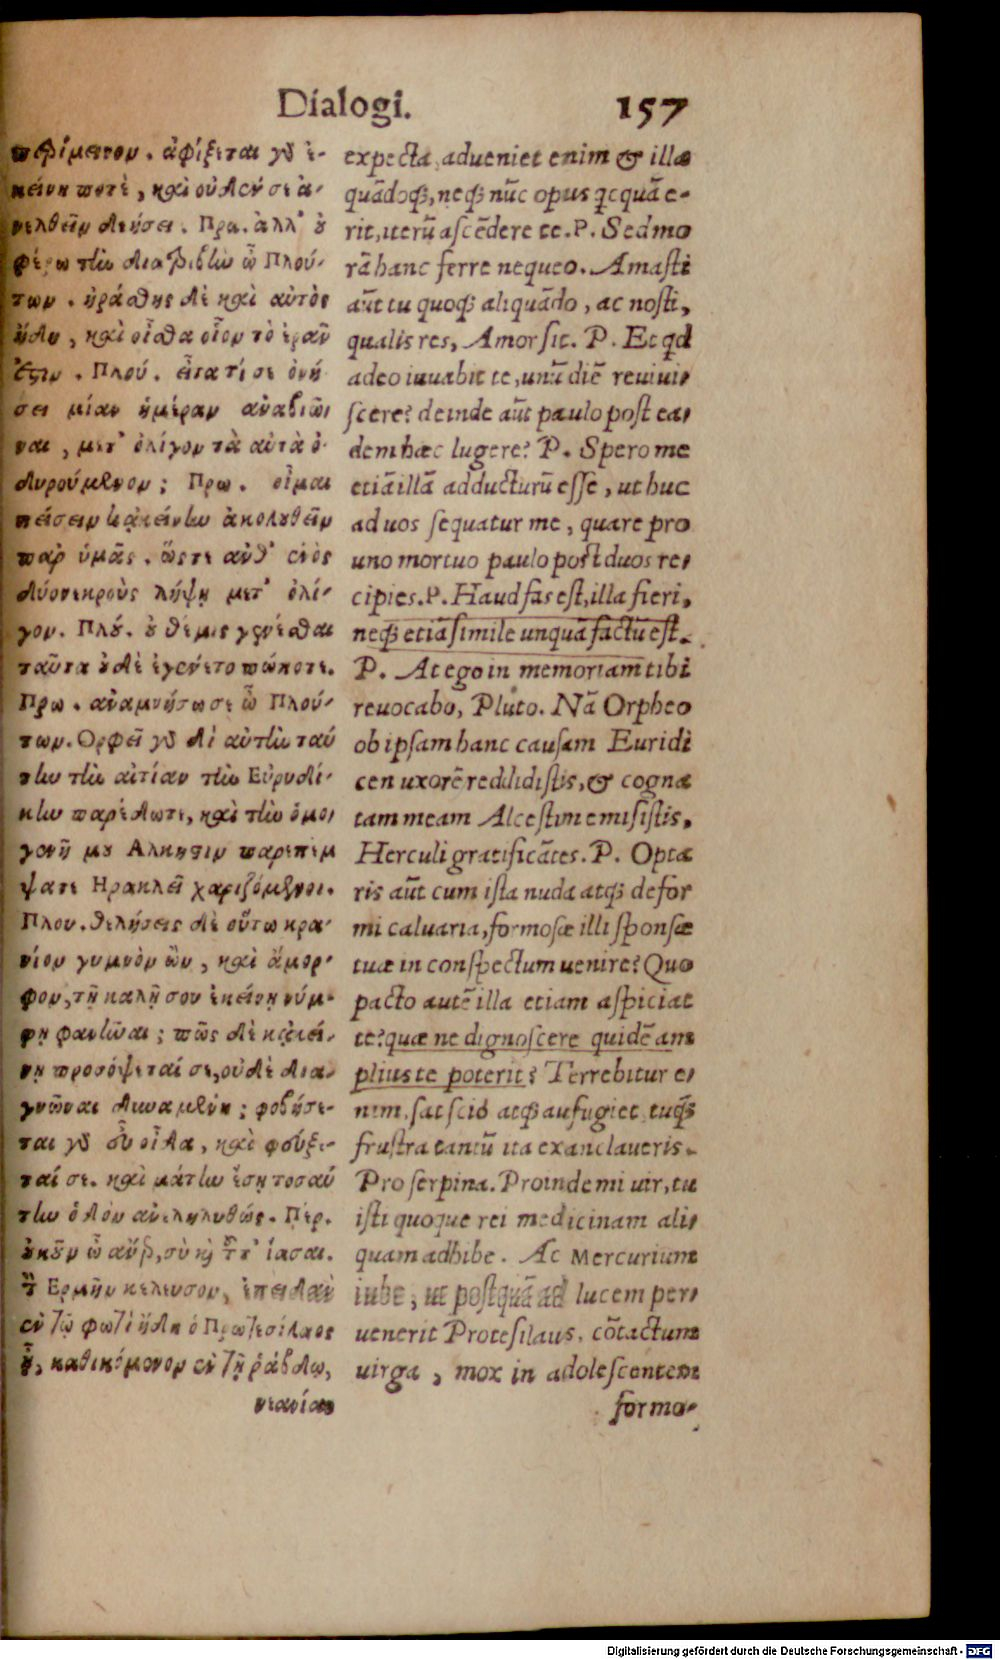 Dialogi. 157
περίμεινον. ἀφίξεται γὸ ἐ-
κείνη ποτὲ, καὶ οὐδέν σε ἀ-
νελθεῖν δεήσει. Πρω. ἀλλ' ȣ
φέρω τὴν διατριβὴν ὦ Πλού-
των. ἠράσθης δὲ καὶ αὐτὸς
ἤδη, καὶ οἶσθα οἷον τὸ ἐρᾶν
ἔστιν. Πλού. εἶτα τί σε ὀνή
σει μίαν ἡμέραν ἀναβιῶ-
ναι, μετ' ὀλίγον τὰ αὐτὰ ὀ-
δυρούμενον; Πρω. οἶμαι
πείσειν κἀκείνην ἀκολȣθεῖν
παρ' ὑμᾶς. ὥστε ἀνθ' ἑνὸς
δύο νεκροὺς λήψῃ μετ' ὀλί-
γον. Πλȣ́. ȣ θέμις γενέσθαι
ταῦτα ȣδὲ ἐγένετο πώποτε.
Πρω. ἀναμνήσω σε ὦ Πλού-
των. Ορφεῖ γὸ δι' αὐτὴν ταύ
την τὴν αἰτίαν τὴν Εὐρυδί-
κην παρέδωτε, καὶ τὴν ὁμο-
γενῆ μȣ Αλκηστιν παρεπέμ
ψατε Ηρακλεῖ χαριζόμενοι.
Πλου. θελήσεις δὲ οὕτω κρα-
νίον γυμνὸν ὢν, καὶ ἄμορ-
φον, τῇ καλῇ σου ἐκείνῃ νύμ-
φῃ φανῆναι; πῶς δὲ κἀκεί-
νη προσόψεταί σε, οὐδὲ δια-
γνῶναι δυναμένη; φοβήσε-
ται γὸ εὖ οἶδα, καὶ φεύξε-
ταί σε. καὶ μάτην ἔσῃ τοσαύ
την ὁδὸν ἀνεληλυθώς. Περ.
ȣκȣ͂ν ὦ ἄνερ, σὺ καὶ τȣ͂τ' ἴασαι.
τ̀ Ερμῆν κέλευσον, ἐπειδὰν
ἐν τῷ φωτὶ ἤδη ὁ Πρωτεσίλαος
ᾖ, καθικόμενον ἐν τῇ ῥάβδῳ,
νεανίαν
expecta, adueniet enim & illa
quādoq́ꝫ, neq́ꝫ nūc opus qcquā e-
rit, iterū ascēdere te. P. Sed mo
rā hanc ferre nequeo. Amasti
aūt tu quoq́ꝫ aliquādo, ac nosti,
qualis res, Amor sit. P. Et qd
adeo iuuabit te, unū diē reuiui-
scere? deinde aūt paulo post ea-
dem hæc lugere? P. Spero me
etiā illā adducturū esse, ut huc
ad uos sequatur me, quare pro
uno mortuo paulo post duos re-
cipies. P. Haud fas est, illa fieri,
neq́ꝫ etiā simile unquā factū est.
P. At ego in memoriam tibi
reuocabo, Pluto. Nā Orpheo
ob ipsam hanc causam Euridi
cen uxorē reddidistis, & cogna
tam meam Alcestim emisistis,
Herculi gratificātes. P. Opta
ris aūt cum ista nuda atq́ꝫ defor
mi caluaria, formosæ illi sponsæ
tuæ in conspectum uenire? Quo
pacto autē illa etiam aspiciat
te? quæ ne dignoscere quidē am
plius te poterit? Terrebitur e-
nim, sat scio atq́ꝫ aufugiet, tuq́ꝫ
frustra tantū ita exanclaueris.
Proserpina. Proinde mi uir, tu
isti quoque rei medicinam ali-
quam adhibe. Ac Mercurium
iube, ut postquā ad lucem per-
uenerit Protesilaus, cōtactum
uirga, mox in adolescentem
formo-
Digitalisierung gefördert durch die Deutsche Forschungsgemeinschaft - DFG